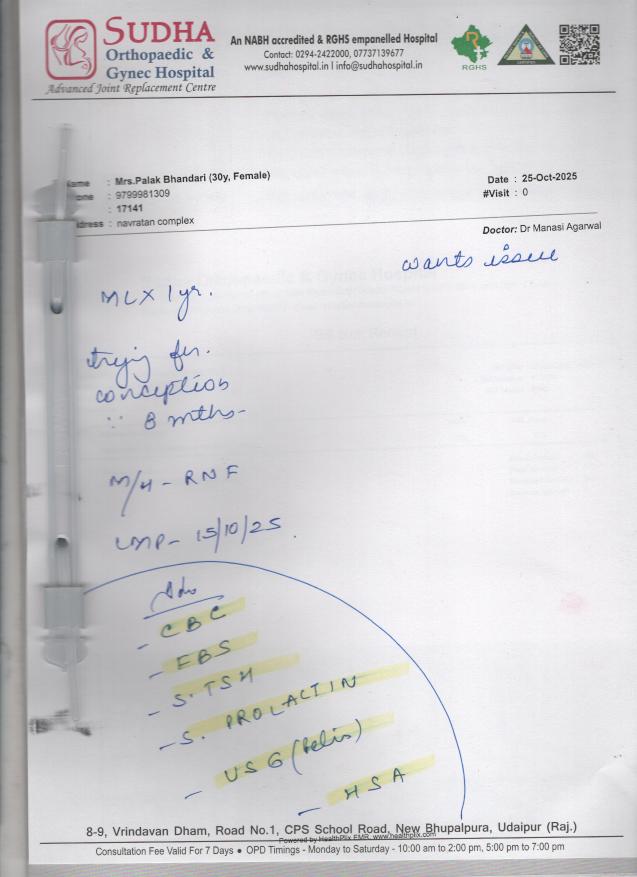 SUDHA
Orthopaedic &
Gynec Hospital
Advanced Joint Replacement Centre
An NABH accredited & RGHS empanelled Hospital
Contact: 0294-2422000, 07737139677
www.sudhahospital.in | info@sudhahospital.in
RGHS
: Mrs.Palak Bhandari (30y, Female)
: 9799981309
: 17141
: navratan complex
Date : 25-Oct-2025
#Visit : 0
Doctor: Dr Manasi Agarwal
wants issue
MLX 1yr.
trying for.
conception
∵ 8 mths-
M/H - RNF
LMP- 15/10/25.
Adv
- CBC
- FBS
- S. TSH
- S. PROLACTIN
- USG (Pelvis)
- HSA
8-9, Vrindavan Dham, Road No.1, CPS School Road, New Bhupalpura, Udaipur (Raj.)
Powered by HealthPlix EMR. www.healthplix.com
Consultation Fee Valid For 7 Days ● OPD Timings - Monday to Saturday - 10:00 am to 2:00 pm, 5:00 pm to 7:00 pm